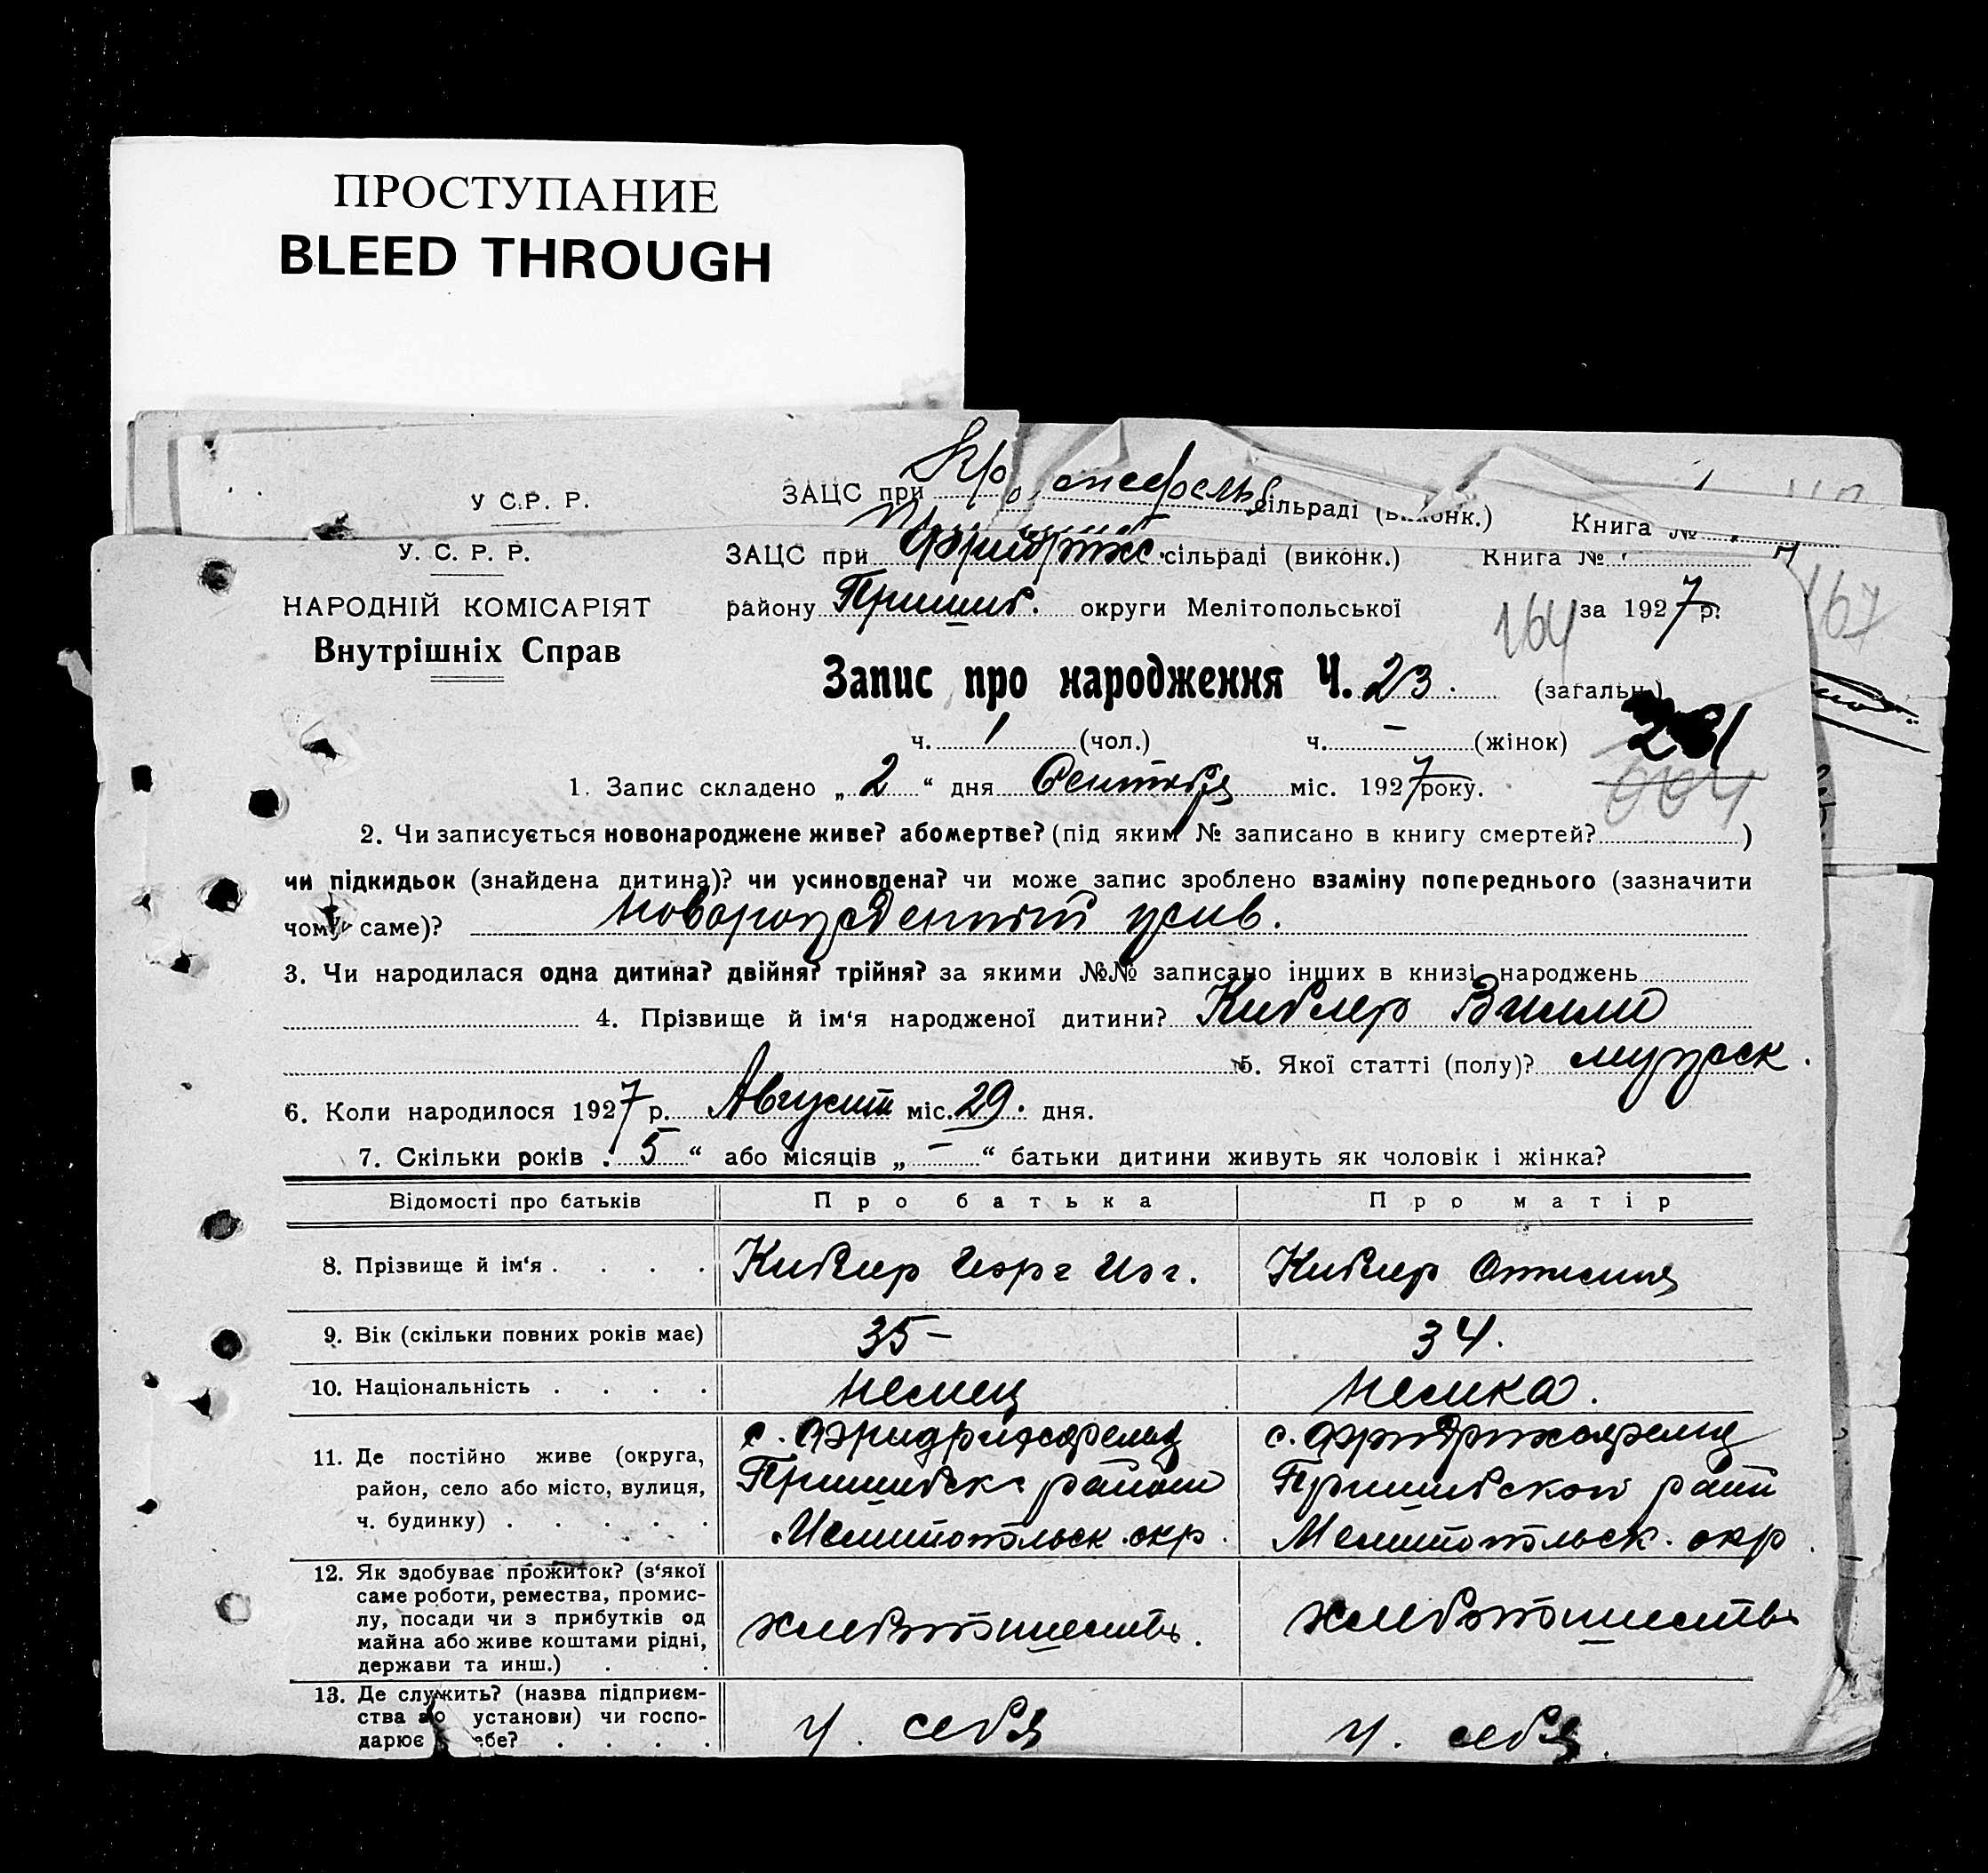 ПРОСТУПАНИЕ
BLEED THROUGH
У С.Р. Р. ЗАЦС при сільраді Книга №
У. С. Р. Р. ЗАЦС при Фридрихс. сільраді (виконк.) Книга №
НАРОДНІЙ КОМІСАРІЯТ району Пришиб. округи Мелітопольської 164 за 1927 р. 167
Внутрішніх Справ
Запис про народження Ч. 23. (загальн.)
ч. 1 (чол.) ч. – (жінок)
1. Запис складено „ 2 “ дня Сентября міс. 1927 року.
2. Чи записується новонароджене живе? або мертве? (під яким № записано в книгу смертей? )
чи підкидьок (знайдена дитина)? чи усиновлена? чи може запис зроблено взаміну попереднього (зазначити
чому саме)? новорожденный жив.
3. Чи народилася одна дитина? двійня? трійня? за якими №№ записано інших в книзі народжень
4. Прізвище й ім‘я народженої дитини? Киблер Вилли
5. Якої статті (полу)? мужск.
6. Коли народилося 1927 р. Август міс. 29. дня.
7. Скільки років „ 5 “ або місяців „ – “ батьки дитини живуть як чоловік і жінка?
Відомості про батьків Про батька Про матір
8. Прізвище й ім‘я . . . . Киблер Георг Киблер
9. Вік (скільки повних років має) 35 – 34.
10. Національність . . . . немец немка.
11. Де постійно живе (округа, с. Фридрихсфельд с. Фридрихсфельд
район, село або місто, вулиця, Пришибск. район Пришибской район
ч. будинку) . . . . . Мелитопольск. окр. Мелитопольск. окр.
12. Як здобуває прожиток? (з‘якої
саме роботи, ремества, промис-
лу, посади чи з прибутків од хлебопашество. хлебопашество
майна або живе коштами рідні,
держави та инш.) . . .
13. Де служить? (назва підприєм-
ства або установи) чи госпо- у. себя у. себя.
дарює себе? . . . .